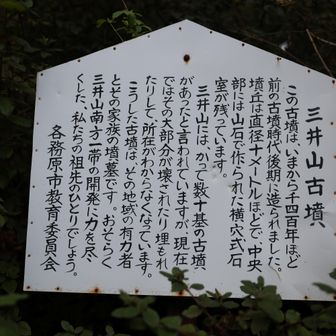 三井山古墳
この古墳は、いまから千四百年ほど
前の古墳時代後期に造られました。
墳丘は直径十メートルほどで、中央
部には山石で作られた横穴式石
室が残っています。
三井山には、かつて数十基の古墳
があったと言われていますが、現在
ではその大部分が壊されたり埋もれ
たりして、所在がわからなくなっています。
こうした古墳は、その地域の有力者
とその家族の墳墓です。おそらく
三井山南方一帯の開発に力を尽
くした、私たちの祖先のひとりでしょう。
各務原市教育委員会